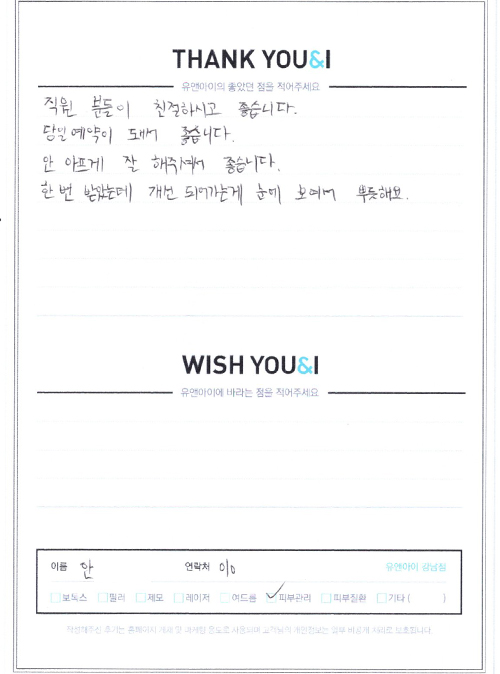 THANK YOU&I
유앤아이의 좋았던 점을 적어주세요
직원 분들이 친절하시고 좋습니다.
당일예약이 돼서 좋습니다.
안 아프게 잘 해주셔서 좋습니다.
한 번 받았는데 개선 되어가는게 눈에 보여서 뿌듯해요.
WISH YOU&I
유앤아이에 바라는 점을 적어주세요
이름 안 연락처 010 유앤아이 강남점
보톡스 필러 제모 레이저 여드름 피부관리 피부질환 기타 ( )
작성해주신 후기는 홈페이지 게재 및 마케팅 용도로 사용되며 고객님의 개인정보는 일부 비공개 처리로 보호됩니다